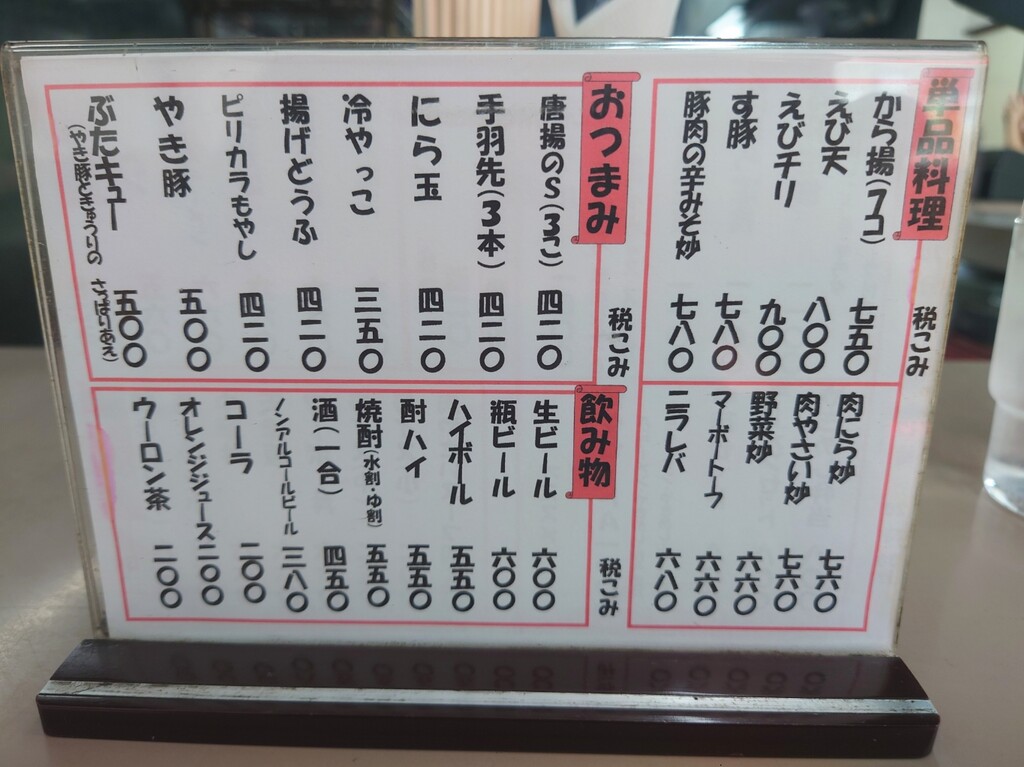 単品料理
から揚(7コ) 七五〇
えび天 八〇〇
えびチリ 九〇〇
す豚 七八〇
豚肉の辛みそ炒 七八〇
税こみ
肉にら炒 七六〇
肉やさい炒 七六〇
野菜炒 六六〇
マーボートーフ 六六〇
ニラレバ 六八〇
おつまみ
唐揚のS(3こ) 四二〇
手羽先(3本) 四二〇
にら玉 四二〇
冷やっこ 三五〇
揚げどうふ 四二〇
ピリカラもやし 四二〇
やき豚 五〇〇
ぶたキュー 五〇〇
(やき豚ときゅうりの さっぱりあえ)
税こみ
飲み物
生ビール 六〇〇
瓶ビール 六〇〇
ハイボール 五五〇
酎ハイ 五五〇
焼酎(水割・ゆ割) 五五〇
酒(一合) 四五〇
ノンアルコールビール 三八〇
コーラ 二〇〇
オレンジジュース 二〇〇
ウーロン茶 二〇〇
税こみ